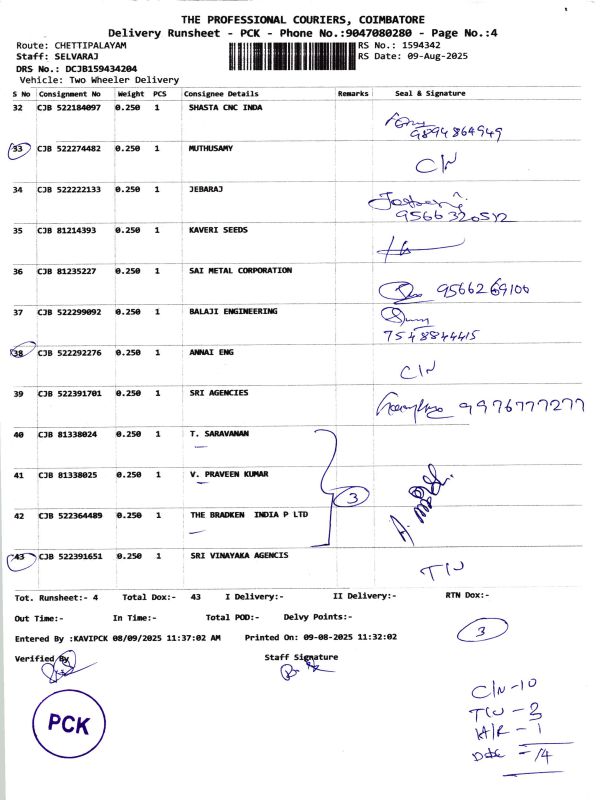 THE PROFESSIONAL COURIERS, COIMBATORE
Delivery Runsheet - PCK - Phone No.:9047080280 - Page No.:4
Route: CHETTIPALAYAM RS No.: 1594342
Staff: SELVARAJ RS Date: 09-Aug-2025
DRS No.: DCJB159434204
Vehicle: Two Wheeler Delivery
S No Consignment No Weight PCS Consignee Details Remarks Seal & Signature
32 CJB 522184097 0.250 1 SHASTA CNC INDA
9894864949
33 CJB 522274482 0.250 1 MUTHUSAMY
C/N
34 CJB 522222133 0.250 1 JEBARAJ
9566320512
35 CJB 81214393 0.250 1 KAVERI SEEDS
36 CJB 81235227 0.250 1 SAI METAL CORPORATION
9566269100
37 CJB 522299092 0.250 1 BALAJI ENGINEERING
7548844415
38 CJB 522292276 0.250 1 ANNAI ENG
C/N
39 CJB 522391701 0.250 1 SRI AGENCIES
9976777277
40 CJB 81338024 0.250 1 T. SARAVANAN
41 CJB 81338025 0.250 1 V. PRAVEEN KUMAR
3
42 CJB 522364489 0.250 1 THE BRADKEN INDIA P LTD
43 CJB 522391651 0.250 1 SRI VINAYAKA AGENCIS
Tot. Runsheet:- 4 Total Dox:- 43 I Delivery:- II Delivery:- RTN Dox:-
Out Time:- In Time:- Total POD:- Delvy Points:-
3
Entered By :KAVIPCK 08/09/2025 11:37:02 AM Printed On: 09-08-2025 11:32:02
Verified By Staff Signature
C/N - 10
PCK
- 3
- 1
= 14